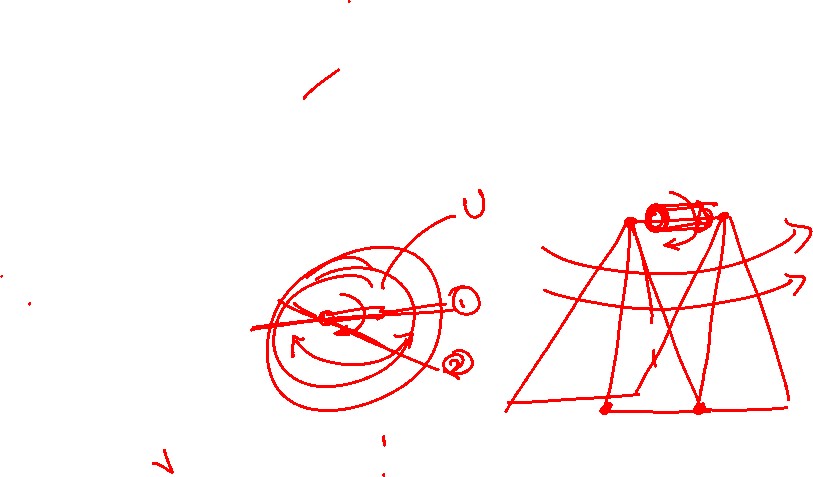 U
①
②